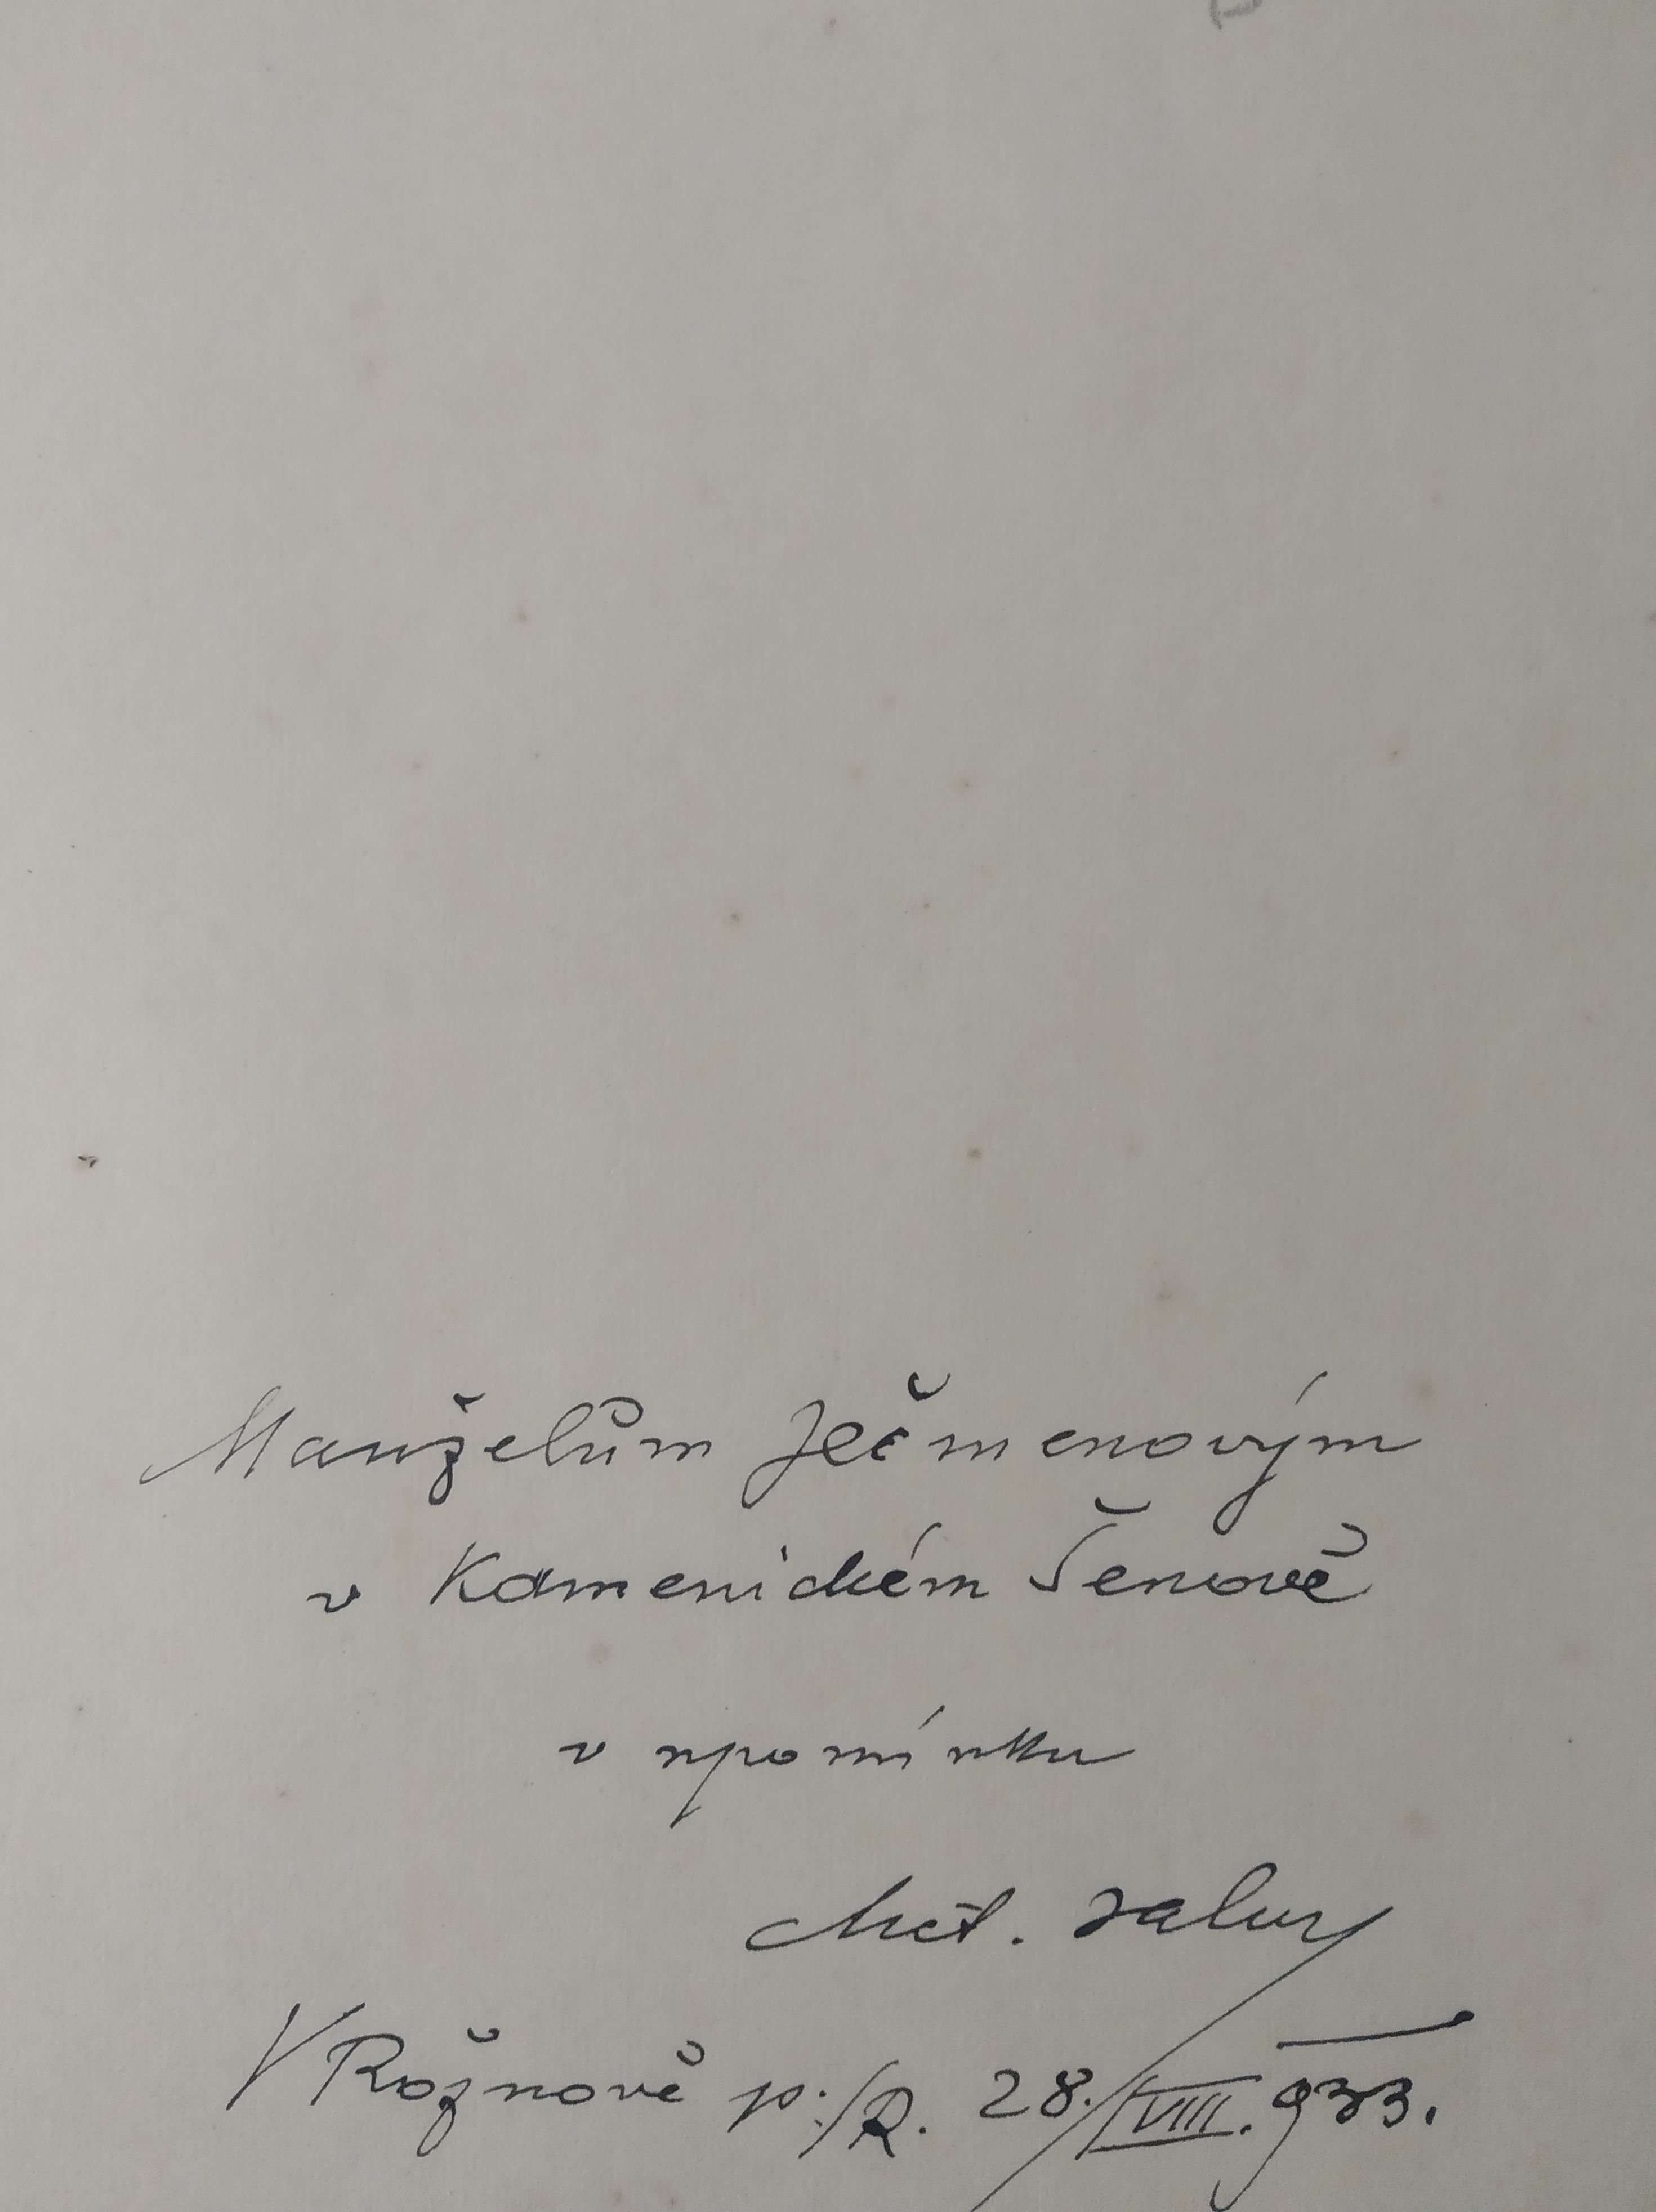 Manželům Ječmenovým
v Kamenickém Šenově
v upomínku
Met. Saluy
V Rožnově p./R. 28./VIII. 933.